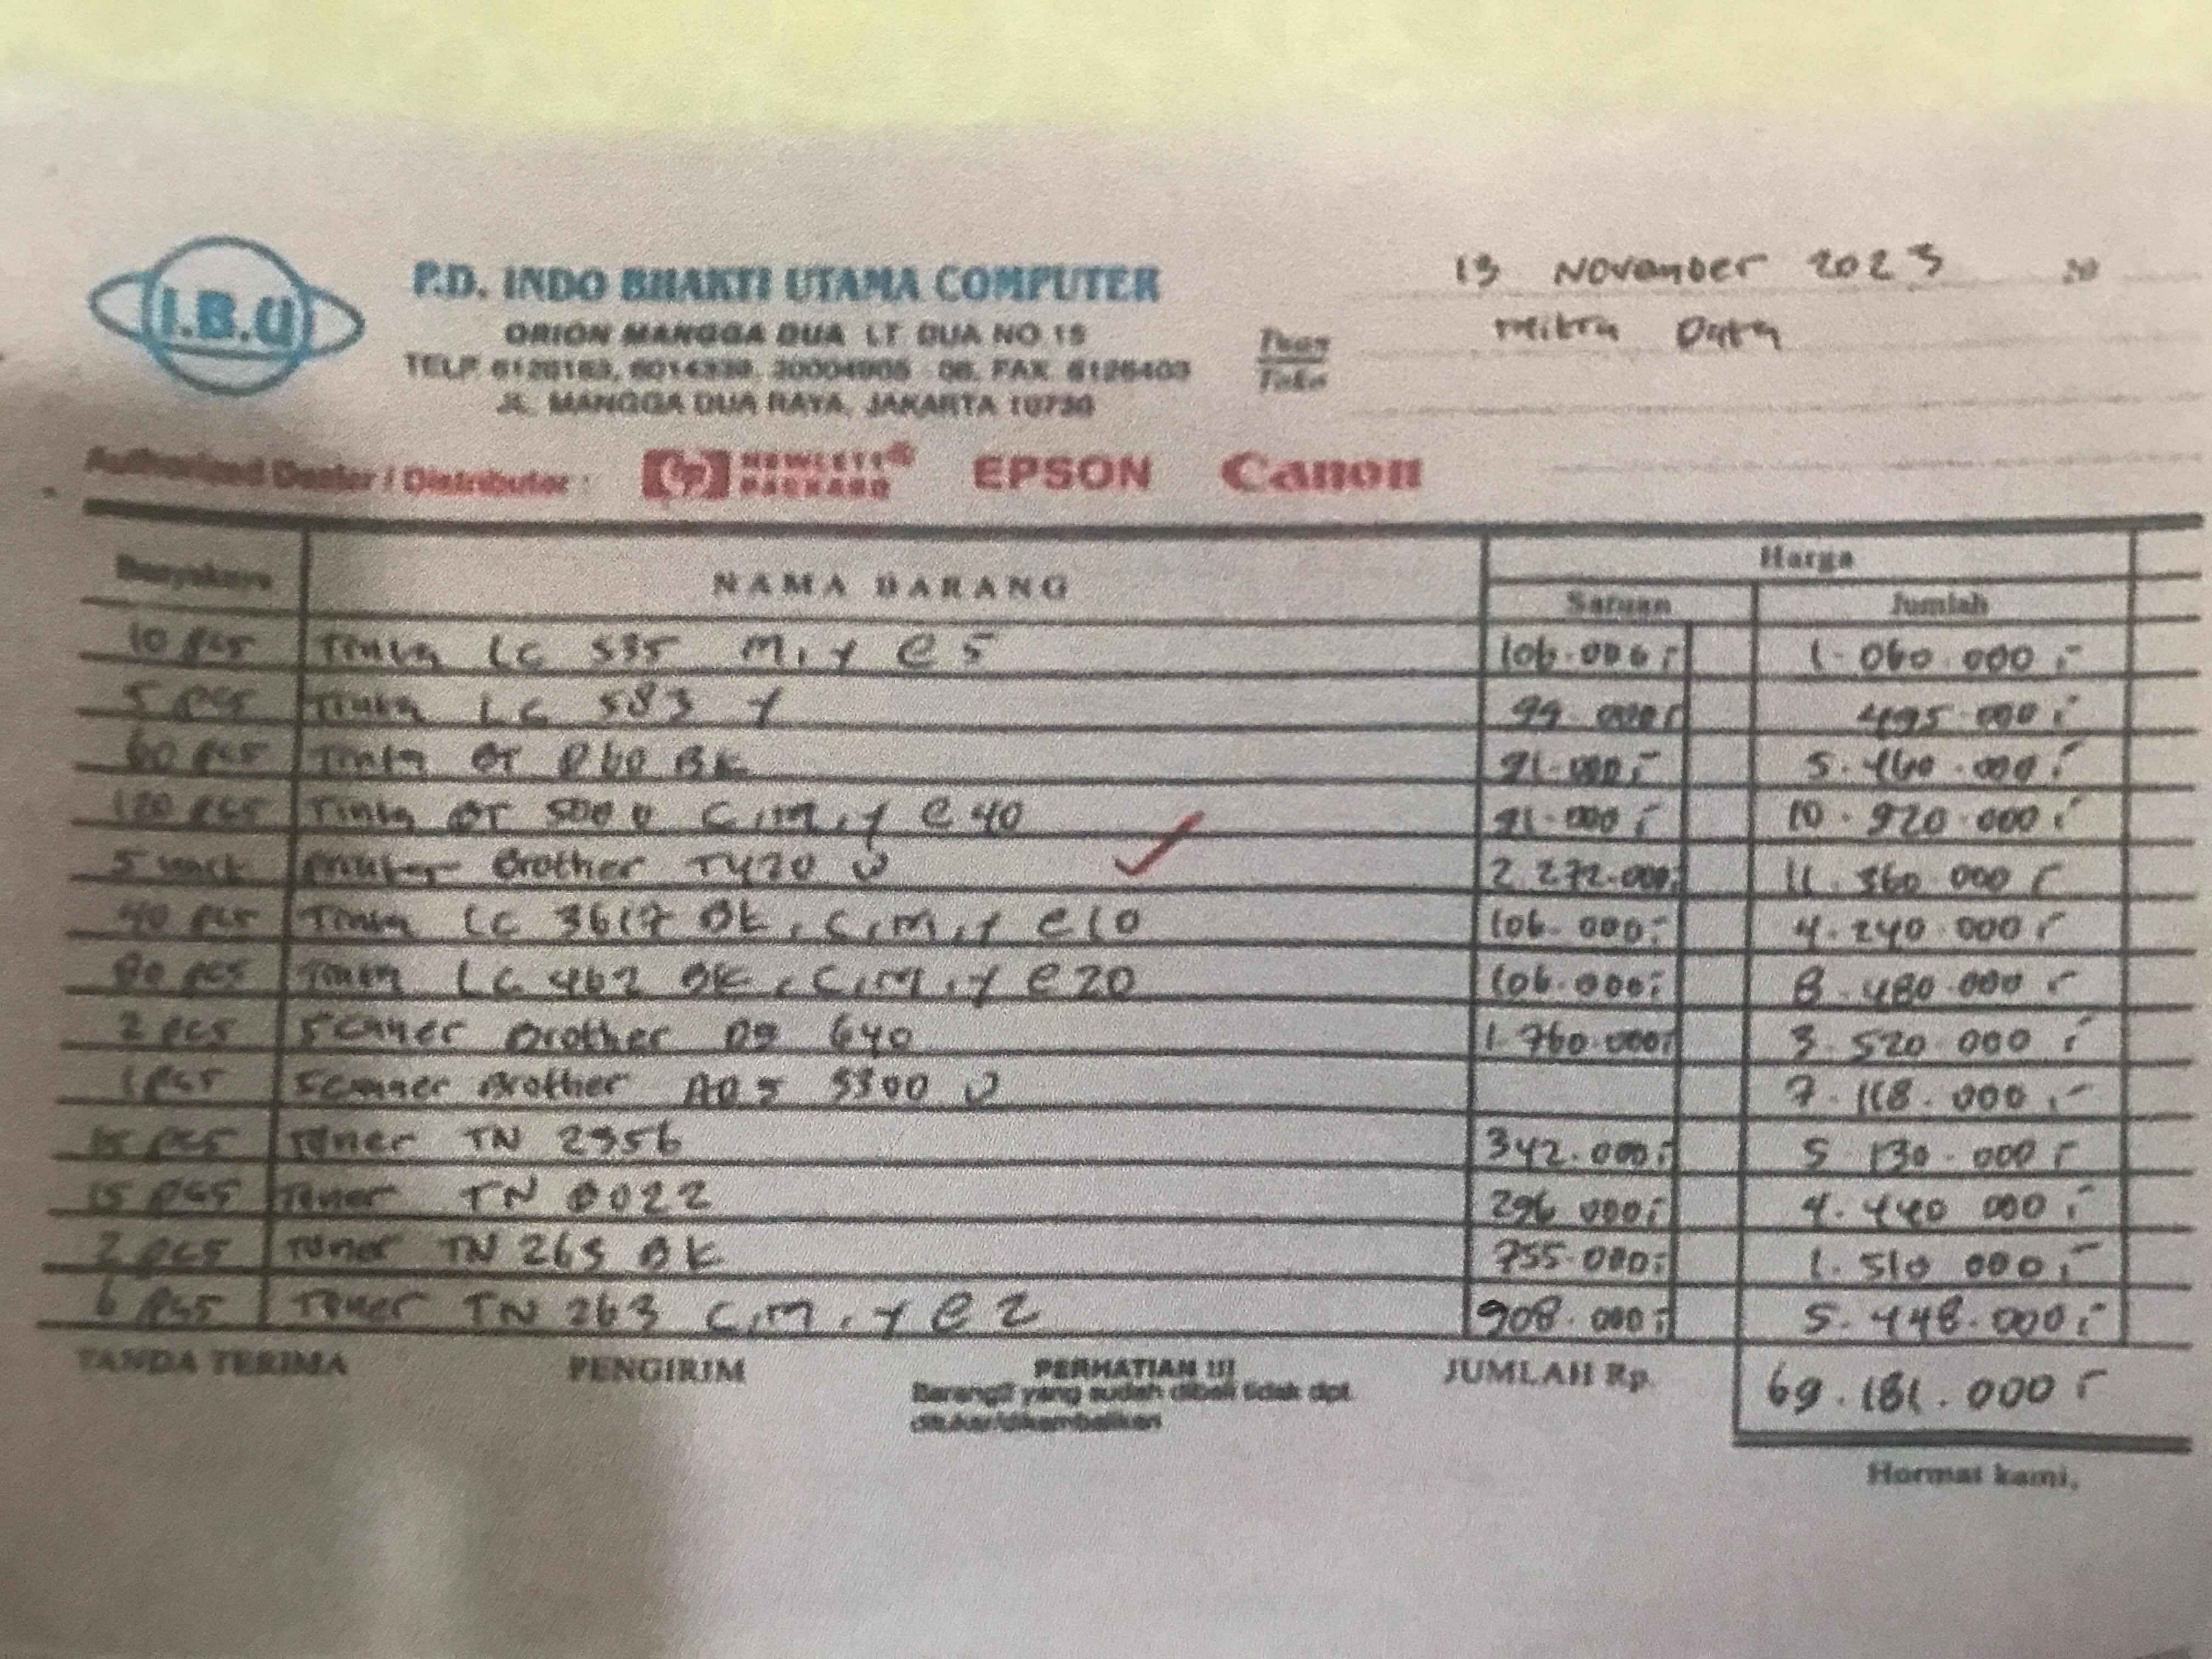 I.B.U
P.D. INDO BHAKTI UTAMA COMPUTER
ORION MANGGA DUA LT DUA NO 15
TELP. 6126163, 6014339, FAX. 6126403
JL. MANGGA DUA RAYA, JAKARTA 10730
13 November 2023 20
Tuan
Toko
mitra Data
Authorized Dealer / Distributor : hp HEWLETT® PACKARD EPSON Canon
Banyaknya NAMA BARANG Harga
Satuan Jumlah
10 pcs Tinta LC 535 M, Y @ 5 106.000,- 1.060.000,-
5 pcs Tinta LC 583 Y 99.000,- 495.000,-
60 pcs Tinta BT D60 BK 91.000,- 5.460.000,-
120 pcs Tinta BT 5000 C, M, Y @ 40 91.000,- 10.920.000,-
5 printer Brother T420 W 2.272.000,- 11.360.000,-
40 pcs Tinta LC 3617 BK, C, M, Y @ 10 106.000,- 4.240.000,-
80 pcs Tinta LC 462 BK, C, M, Y @ 20 106.000,- 8.480.000,-
2 pcs Scaner Brother DS 640 1.760.000,- 3.520.000,-
1 pcs Scanner Brother ADS 3300 W 7.118.000,-
15 pcs Toner TN 2356 342.000,- 5.130.000,-
15 pcs Toner TN B022 296.000,- 4.440.000,-
2 pcs Toner TN 263 BK 755.000,- 1.510.000,-
6 pcs Toner TN 263 C, M, Y @ 2 908.000,- 5.448.000,-
TANDA TERIMA PENGIRIM PERHATIAN !!! JUMLAH Rp. 69.181.000,-
Barang2 yang sudah dibeli tidak dpt
ditukar/dikembalikan
Hormat kami,